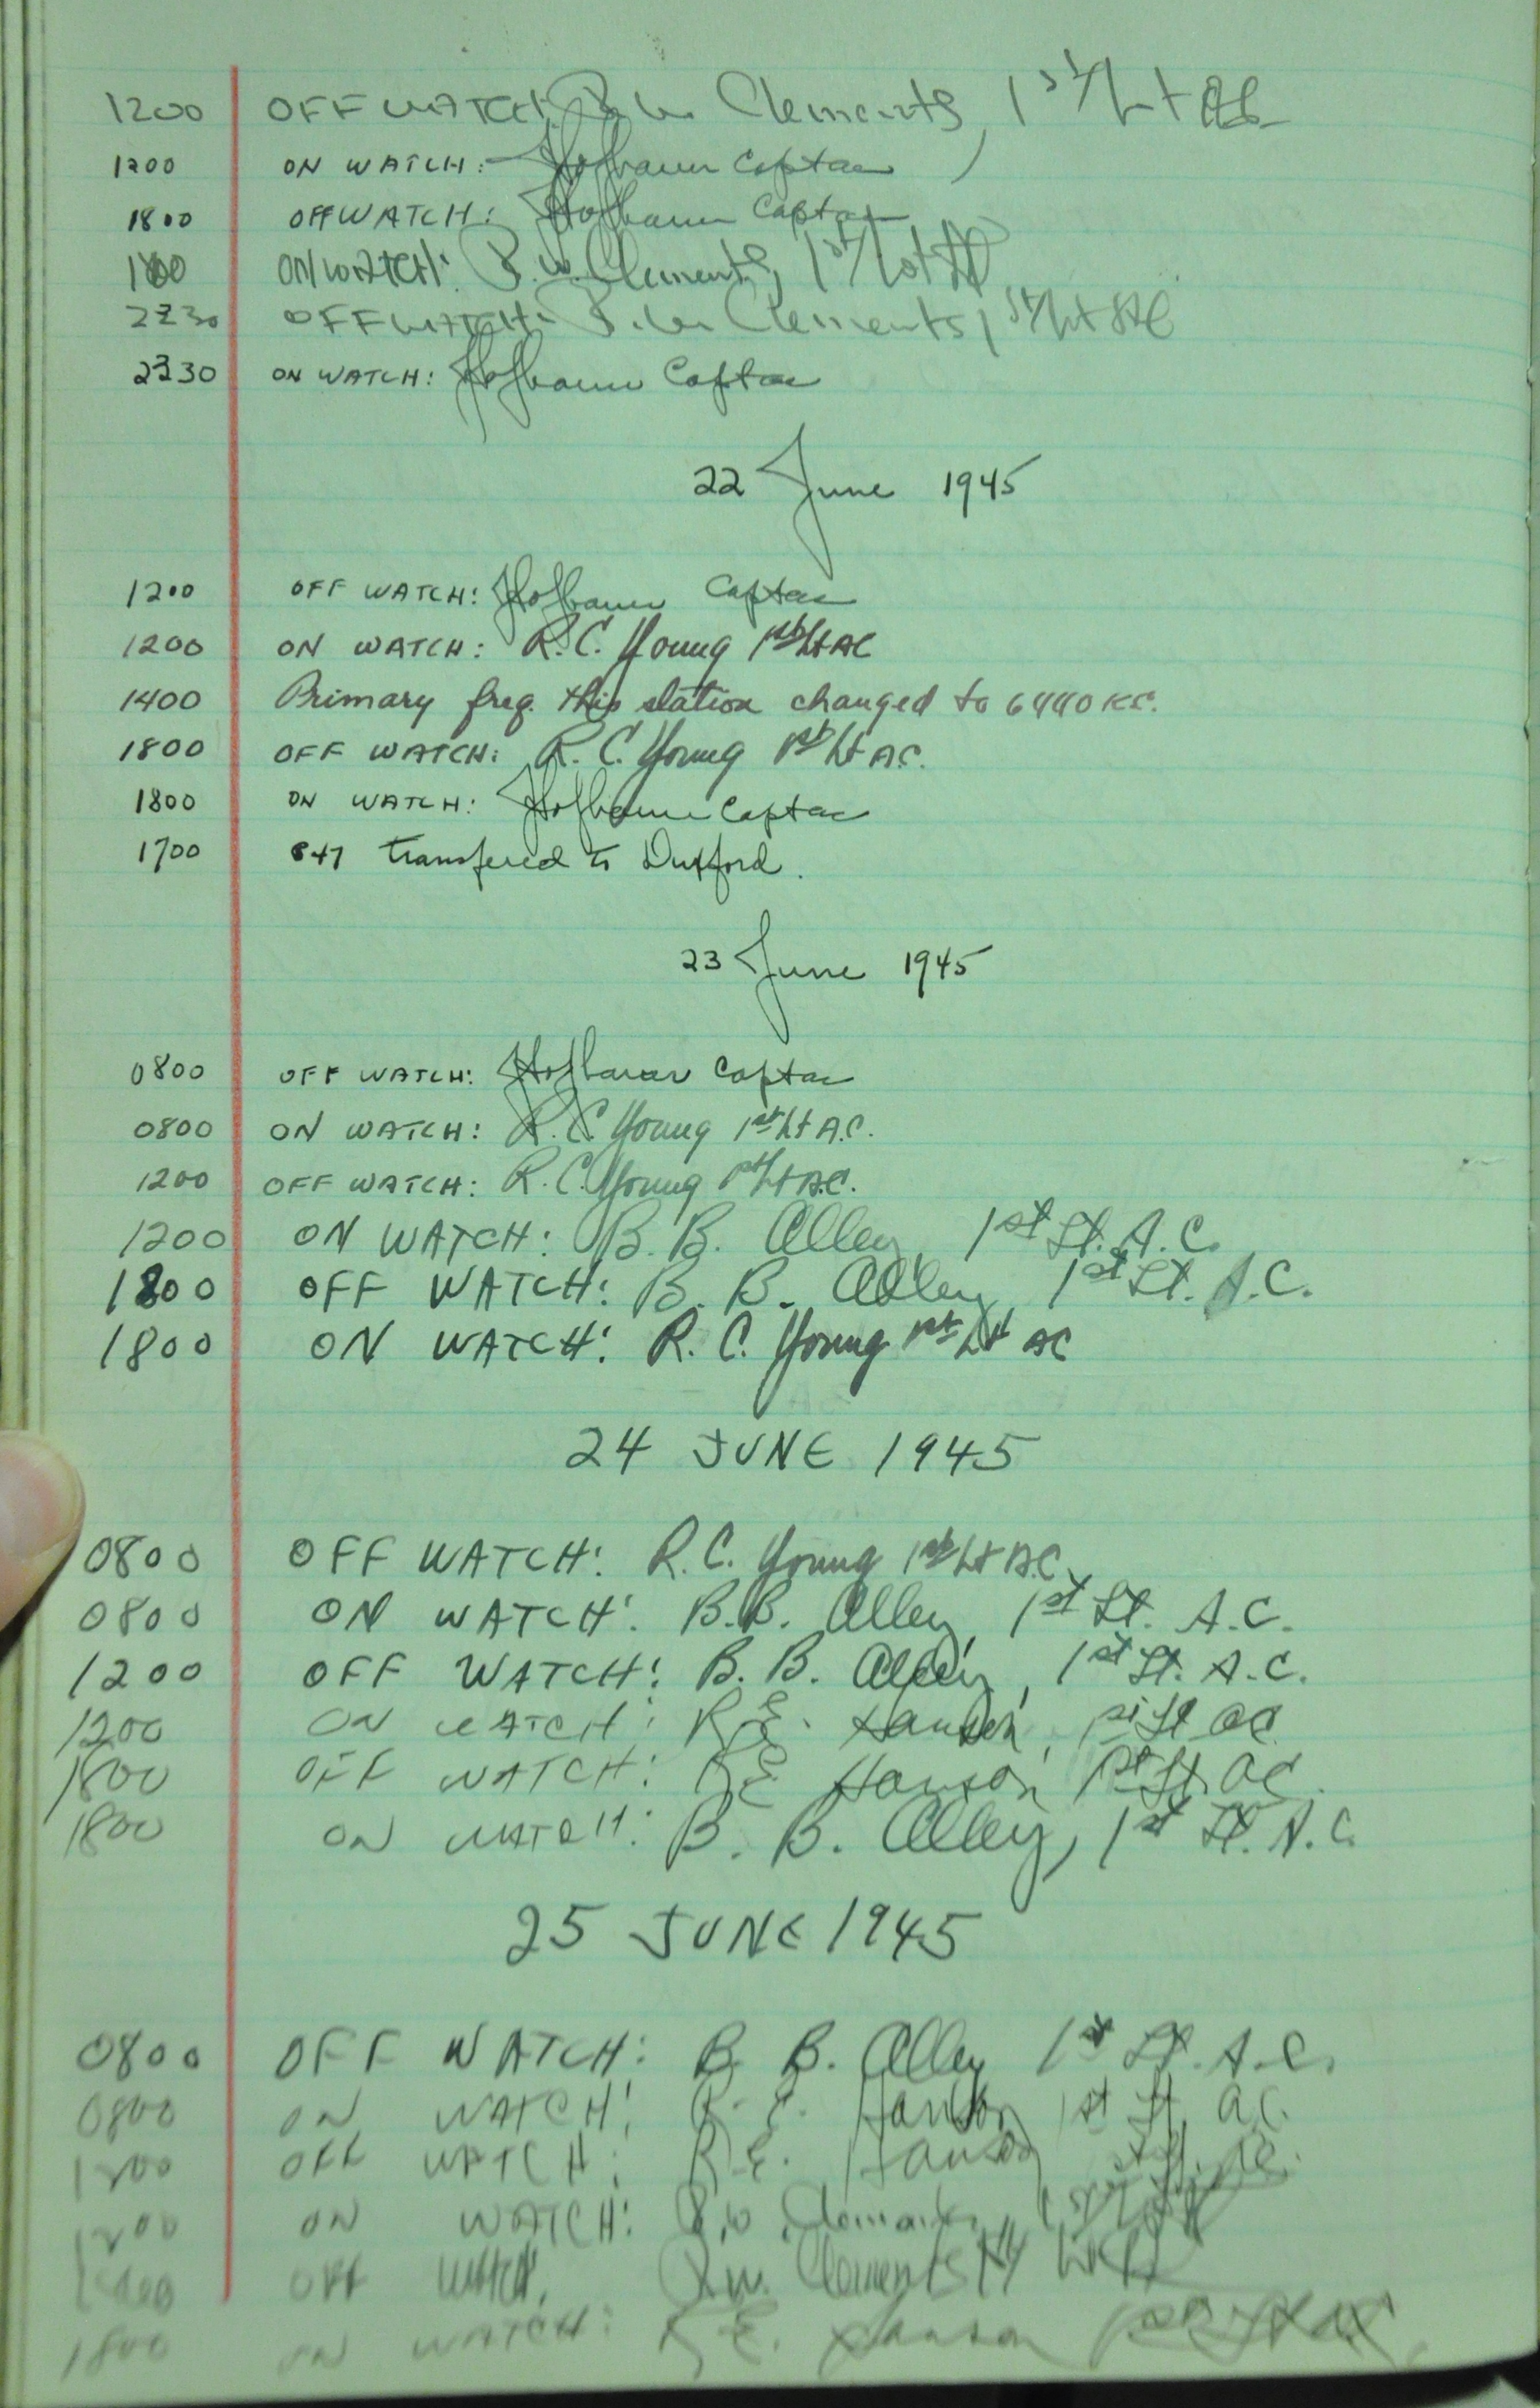 1200 OFF WATCH: P.W. Clements, 1st Lt AC
1200 ON WATCH: Hofbauer Capt ac
1800 OFF WATCH: Hofbauer Capt ac
1800 ON WATCH: P.W. Clements, 1st Lt AC
2230 OFF WATCH: P.W. Clements, 1st Lt AC
2230 ON WATCH: Hofbauer Capt ac
22 June 1945
1200 OFF WATCH: Hofbauer Capt ac
1200 ON WATCH: R.C. Young 1st Lt AC
1400 Primary freq. this station changed to 6440 KC.
1800 OFF WATCH: R.C. Young 1st Lt A.C.
1800 ON WATCH: Hofbauer Capt ac
1700 transfered to Duxford.
23 June 1945
0800 OFF WATCH: Hofbauer Capt ac
0800 ON WATCH: R.C. Young 1st Lt A.C.
1200 OFF WATCH: R.C. Young 1st Lt A.C.
1200 ON WATCH: B.B. Alley, 1st Lt. A.C.
1800 OFF WATCH: B.B. Alley, 1st Lt. A.C.
1800 ON WATCH: R.C. Young 1st Lt AC
24 JUNE 1945
0800 OFF WATCH: R.C. Young 1st Lt A.C.
0800 ON WATCH: B.B. Alley, 1st Lt. A.C.
1200 OFF WATCH: B.B. Alley, 1st Lt. A.C.
1200 ON WATCH: R.E. Hanson, 1st Lt AC
1800 OFF WATCH: R.E. Hanson 1st Lt. AC.
1800 ON WATCH: B.B. Alley, 1st Lt. A.C.
25 JUNE 1945
0800 OFF WATCH: B.B. Alley 1st Lt. A.C.
0800 ON WATCH: R.E. Hanson 1st Lt. A.C.
1200 OFF WATCH: R.E. Hanson 1st Lt. AC.
1200 ON WATCH: P.W. Clements, 1st
OFF WATCH, P.W. Clements 1st Lt AC
1800 ON WATCH: R.E. Hanson 1st Lt AC.